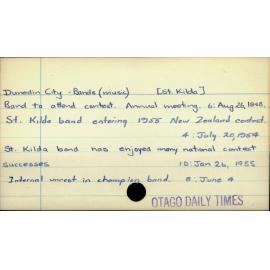 Dunedin City - Bands (music) [St. Kilda]
Band to attend contest. Annual meeting. 6: Aug 26, 1948.
St. Kilda band entering 1955 New Zealand contest.
4: July 20, 1954
St. Kilda band has enjoyed many national contest
successes 10: Jan 26, 1955
Internal unrest in champion band. 5: June 4
OTAGO DAILY TIMES